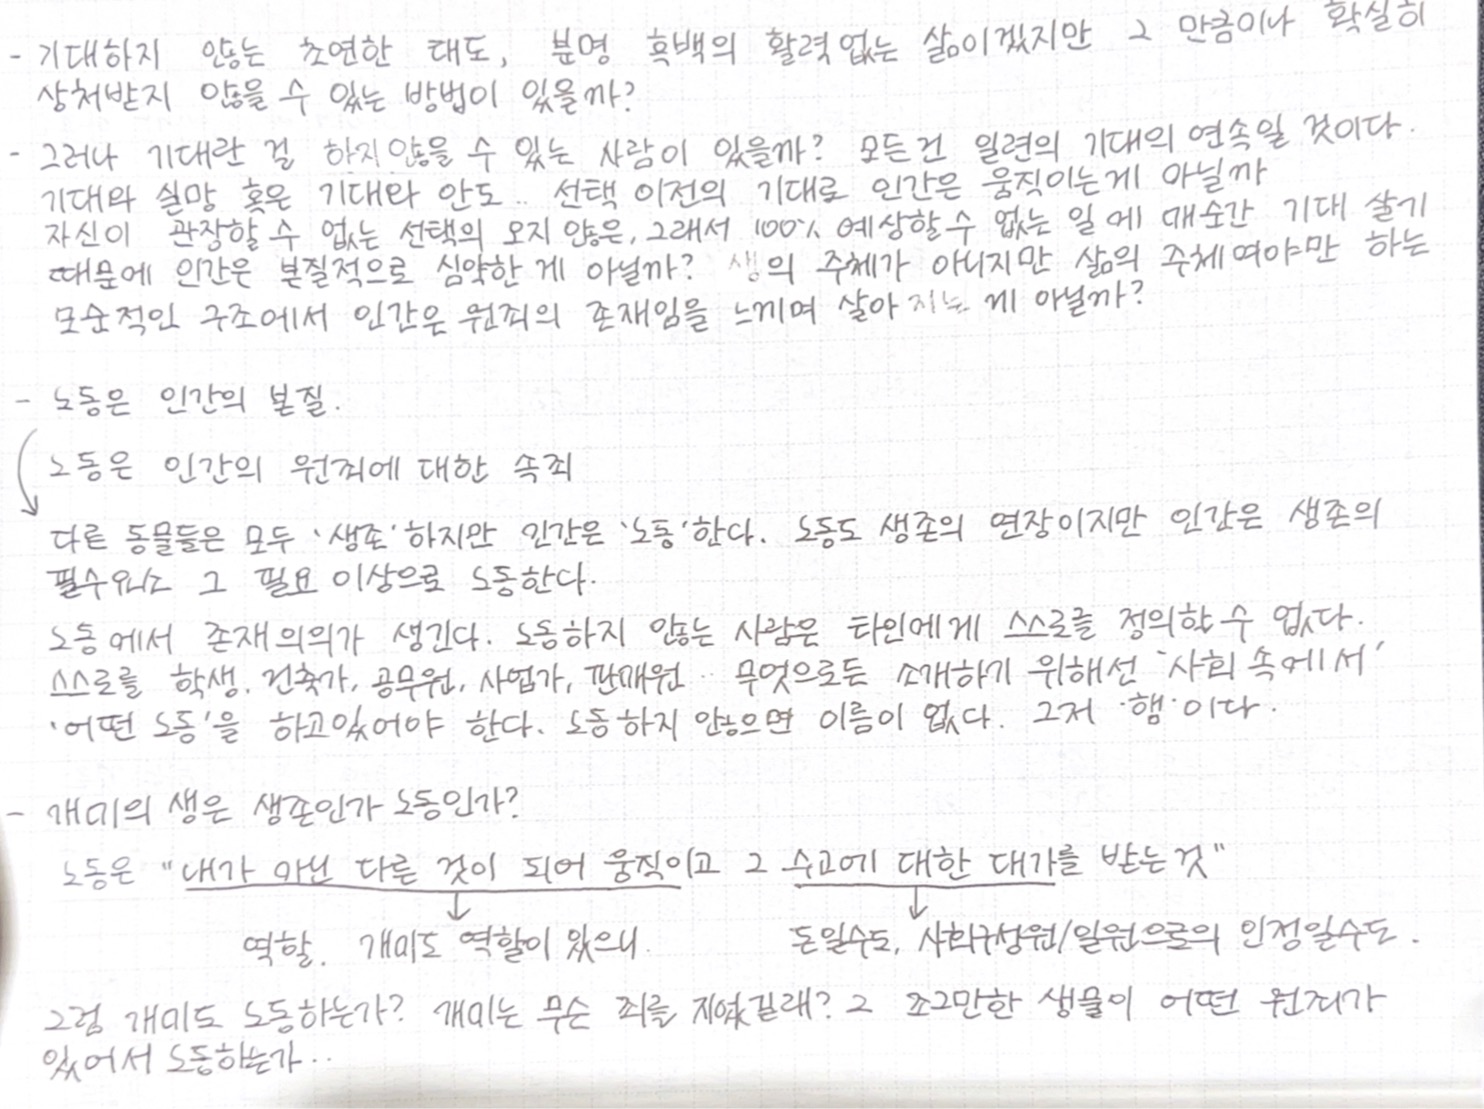 - 기대하지 않는 초연한 태도, 분명 흑백의 활력없는 삶이겠지만 그 만큼이나 확실히
상처받지 않을 수 있는 방법이 있을까?
- 그러나 기대란 걸 하지않을 수 있는 사람이 있을까? 모든건 일련의 기대의 연속일 것이다.
기대와 실망 혹은 기대와 안도.. 선택 이전의 기대로 인간은 움직이는게 아닐까
자신이 관장할 수 없는 선택의 오지 않은, 그래서 100% 예상할수 없는 일에 매순간 기대 살기
때문에 인간은 본질적으로 심약한 게 아닐까? 생의 주체가 아니지만 삶의 주체여야만 하는
모순적인 구조에서 인간은 원죄의 존재임을 느끼며 살아지는 게 아닐까?
- 노동은 인간의 본질.
노동은 인간의 원죄에 대한 속죄
다른 동물들은 모두 '생존'하지만 인간은 '노동'한다. 노동도 생존의 연장이지만 인간은 생존의
필수요소 그 필요 이상으로 노동한다.
노동에서 존재의의가 생긴다. 노동하지 않는 사람은 타인에게 스스로를 정의할 수 없다.
스스로를 학생, 건축가, 공무원, 사업가, 판매원.. 무엇으로든 소개하기 위해선 '사회 속에서'
'어떤 노동'을 하고있어야 한다. 노동하지 않으면 이름이 없다. 그저 '햄'이다.
- 개미의 생은 생존인가 노동인가?
노동은 "내가 아닌 다른 것이 되어 움직이고 그 수고에 대한 대가를 받는것"
역할. 개미도 역할이 있으니. 돈일수도, 사회구성원/일원으로의 인정일수도.
그럼 개미도 노동하는가? 개미는 무슨 죄를 지었길래? 그 조그만한 생물이 어떤 원죄가
있어서 노동하는가...